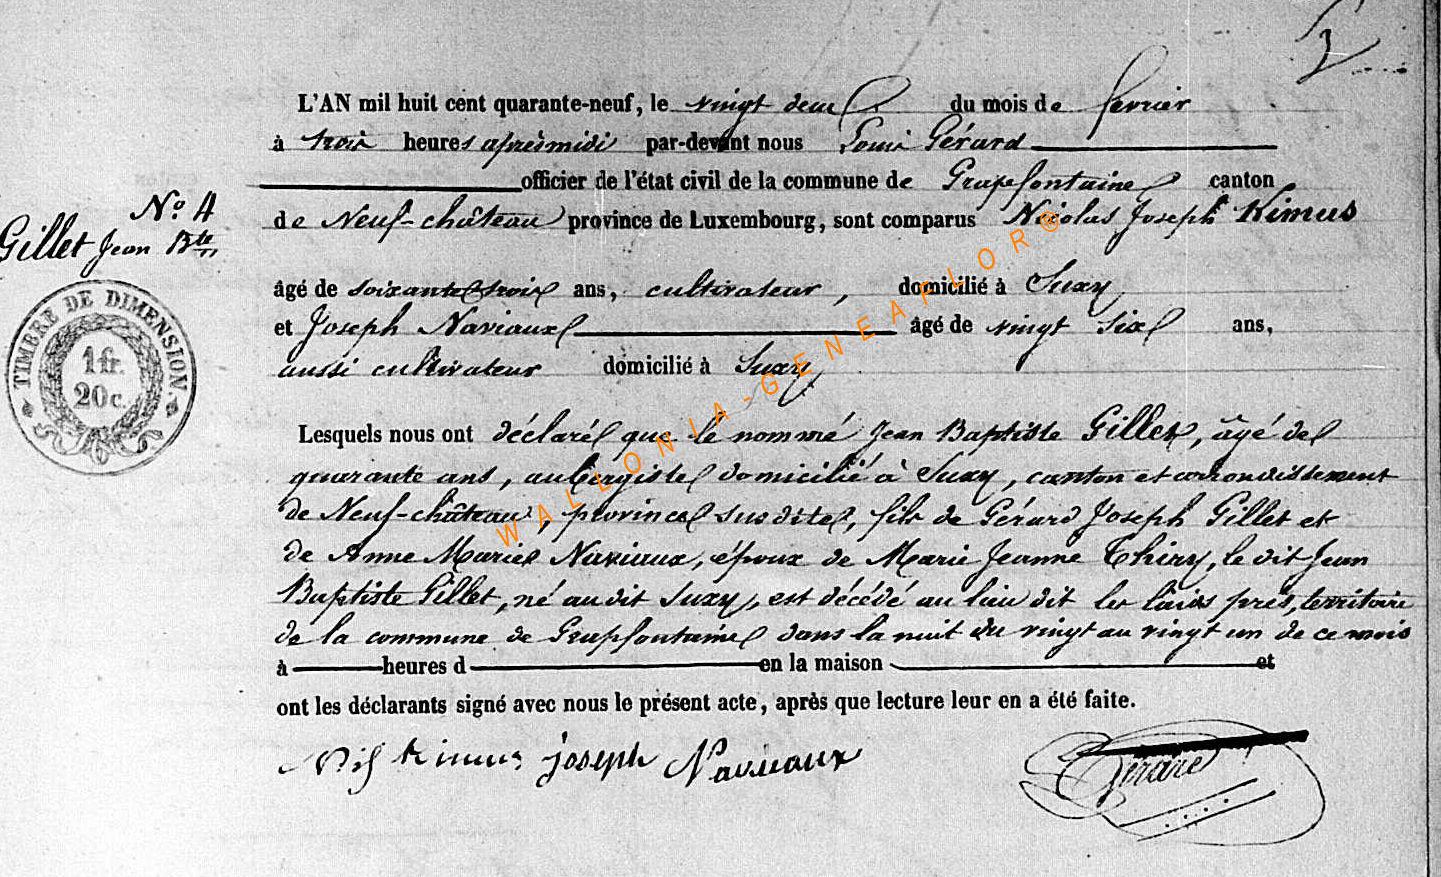 L'AN mil huit cent quarante-neuf, le vingt deux du mois de fevrier
à trois heures aprèsmidi par-devant nous Louis Gérard
officier de l'état civil de la commune de Grapefontaine canton
N.º 4
de Neuf-château province de Luxembourg, sont comparus Nicolas Joseph Kimus
Gillet Jean Bte
âgé de soixante trois ans, cultivateur, domicilié à Suxy
et Joseph Naviaux âgé de vingt six ans,
aussi cultivateur domicilié à Suxy
TIMBRE DE DIMENSION
1 fr.
20 c.
Lesquels nous ont déclaré que le nommé Jean Baptiste Gillet, âgé de
quarante ans, aubergiste domicilié à Suxy, canton et arrondissement
de Neuf-château, province susdite, fils de Gérard Joseph Gillet et
de Anne Marie Naviaux, époux de Marie Jeanne Thiry, le dit Jean
Baptiste Gillet, né au dit Suxy, est décédé au lieu dit les laids prés, territoire
de la commune de Grapfontaine dans la nuit du vingt au vingt un de ce mois
à heures d en la maison et
ont les déclarants signé avec nous le présent acte, après que lecture leur en a été faite.
Kimus joseph Naviaux Gérard
WALLONIA-GENEAFLOR®